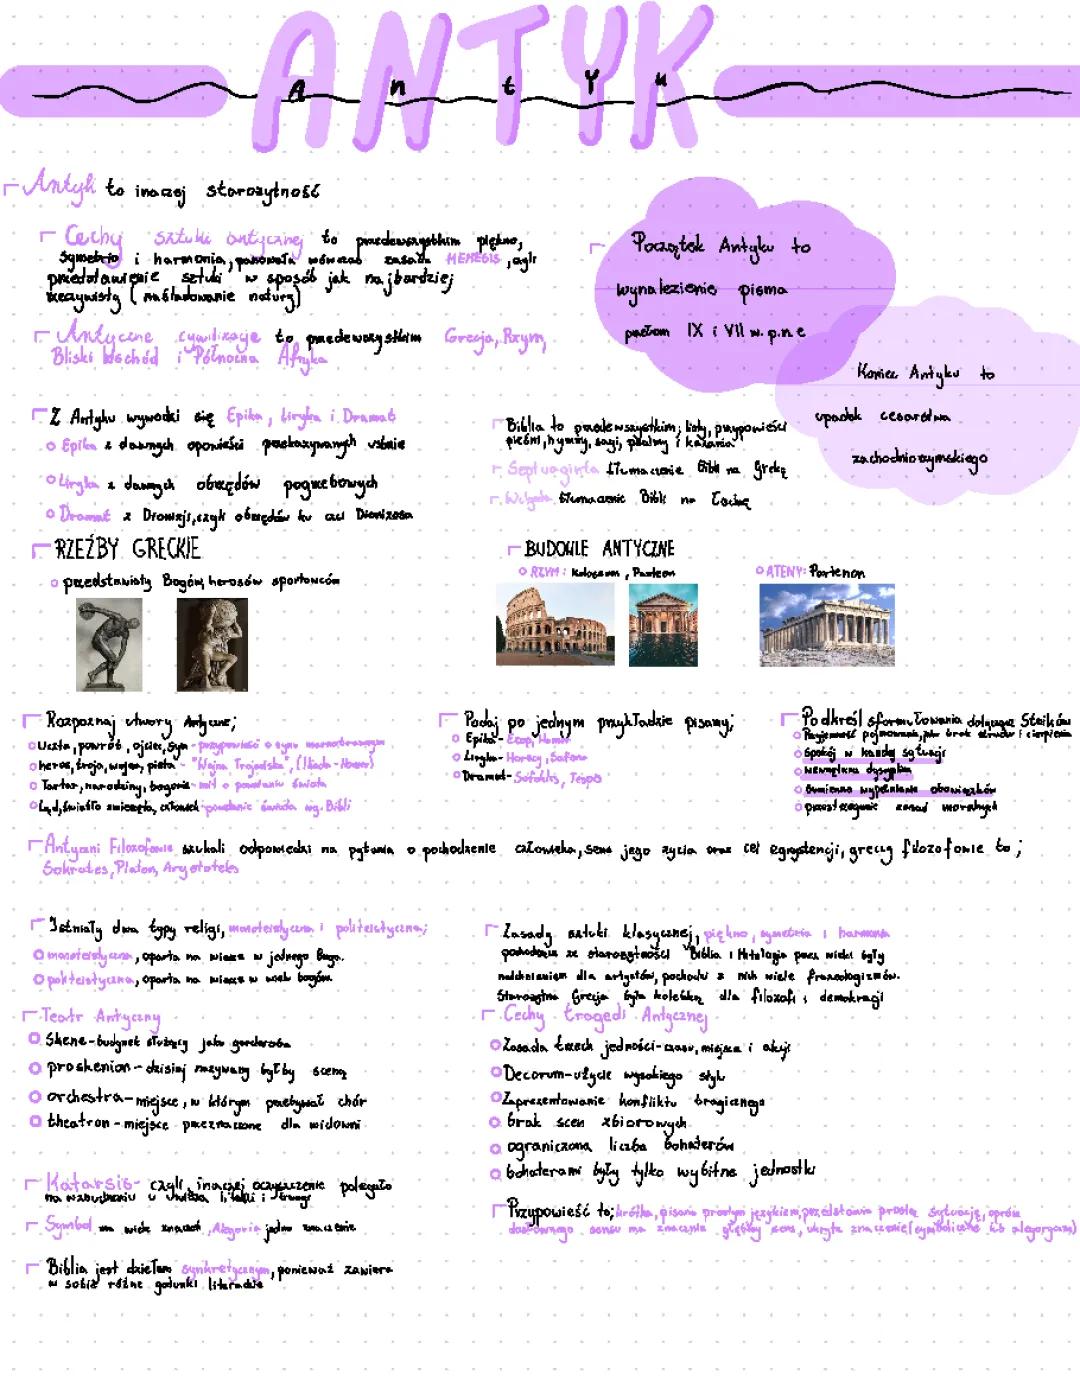 ANTYK
A n t y k
Antyk to inaczej starożytność
Cechy sztuki antycznej to przedewszystkim piękno,
symetria i harmonia, panowała wówczas zasada MEMESIS, czyli
przedstawienie sztuki w sposób jak najbardziej
rzeczywisty (naśladowanie natury)
Antyczne cywilizacje to przedewszystkim Grecja, Rzym,
Bliski Wschód i Północna Afryka
Początek Antyku to
wynalezienie pisma
pomiędzy IX i VII w. p.n.e
Koniec Antyku to
upadek cesarstwa
zachodniorzymskiego
Z Antyku wywodzi się Epika, Liryka i Dramat
Epika z dawnych opowieści przekazywanych ustnie
Liryka z dawnych obrzędów pogrzebowych
Dramat z Dionizji, czyli obrzędów ku czci Dionizosa
Biblia to przedewszystkim; listy, przypowieści
pieśni, hymny, sagi, psalmy i kazania
Septuaginta tłumaczenie Bibli na Grekę
Wulgata tłumaczenie Bibli na Łacinę
RZEŹBY GRECKIE
przedstawiały Bogów, herosów sportowców
BUDOWLE ANTYCZNE
RZYM: Koloseum, Panteon
ATENY: Partenon
Rozpoznaj utwory Antyczne;
Uczta, powrót, ojciec, syn - przypowieść o synu marnotrawnym
heros, troja, wojna, pieta - "Wojna Trojańska", (Iliada - Homer)
Tartar, narodziny, bogowie - mit o powstaniu świata
Ląd, światło zwierzęta, człowiek - powstanie świata wg. Bibli
Podaj po jednym przykładzie pisarzy;
Epika - Ezop, Homer
Liryka - Horacy, Safona
Dramat - Sofokles, Tespis
Podkreśl sformułowania dotyczące Stoików
Przyjemność pojmowana, jako brak strachu i cierpienia
Spokój w każdej sytuacji
wewnętrzna dyscyplina
Sumienne wypełnianie obowiązków
przestrzeganie zasad moralnych
Antyczni Filozofowie szukali odpowiedzi na pytania o pochodzenie człowieka, sens jego życia oraz cel egzystencji, greccy filozofowie to;
Sokrates, Platon, Arystoteles
Istniały dwa typy religi, monoteistyczna i politeistyczna;
monoteistyczna, oparta na wierze w jednego Boga.
politeistyczna, oparta na wierze w wielu bogów.
Zasady sztuki klasycznej, piękno, symetria i harmonia
pochodzenie ze starożytności Biblia i Mitologia przez wieki były
natchnieniem dla artystów, pochodzi z nich wiele frazeologizmów.
Starożytna Grecja była kolebką dla filozofi i demokracji
Teatr Antyczny
Skene - budynek służący jako garderoba
proskenion - dzisiaj nazywany byłby sceną
orchestra - miejsce, w którym przebywał chór
theatron - miejsce przeznaczone dla widowni
Cechy tragedi Antycznej
Zasada trzech jedności - czasu, miejsca i akcji
Decorum - użycie wysokiego stylu
Zaprezentowanie konfliktu tragicznego
brak scen zbiorowych
ograniczona liczba bohaterów
bohaterami były tylko wybitne jednostki
Katarsis - czyli, inaczej oczyszczenie polegało
na wzbudzeniu u widza litości i trwogi
Symbol ma wiele znaczeń, Alegoria jedno znaczenie
Biblia jest dziełem synkretycznym, ponieważ zawiera
w sobie różne gatunki literackie
Przypowieść to; krótka, pisana prostym językiem, przedstawia prostą sytuację, oprócz
dosłownego sensu ma znacznie głębszy sens, ukryte znaczenie (symboliczne lub alegoryczne)